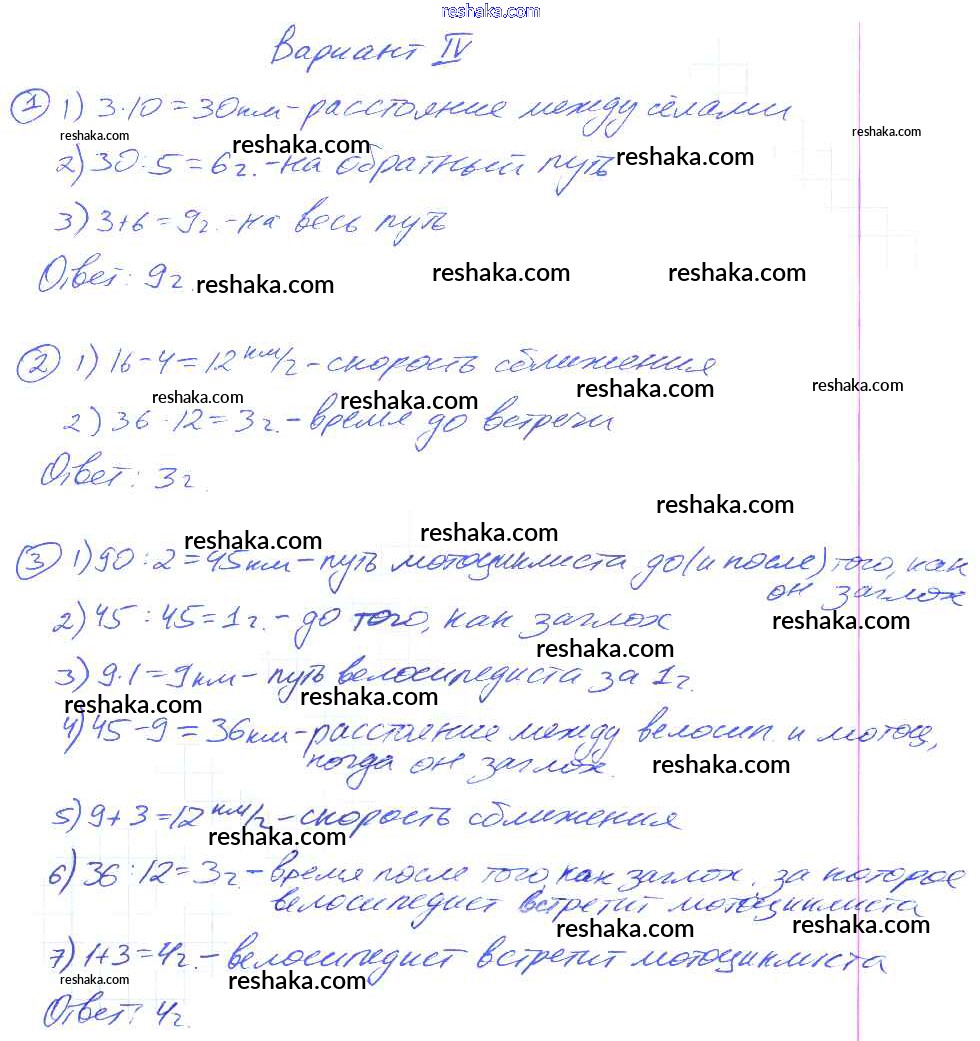 reshaka.com
Вариант IV
1 1) 3·10=30км-расстояние между сёлами
reshaka.com reshaka.com reshaka.com reshaka.com
2) 30:5=6г.-на обратный путь
3) 3+6=9г.-на весь путь
Ответ: 9г.
reshaka.com reshaka.com reshaka.com
2 1) 16-4=12км/г-скорость сближения
reshaka.com reshaka.com reshaka.com reshaka.com
2) 36:12=3г.-время до встречи
Ответ: 3г.
reshaka.com
reshaka.com reshaka.com
3 1) 90:2=45км-путь мотоциклиста до(и после) того, как
он заглох
2) 45:45=1г.-до того, как заглох
reshaka.com reshaka.com
3) 9·1=9км-путь велосипедиста за 1г.
reshaka.com reshaka.com
4) 45-9=36км-расстояние между велосип. и мотоц,
когда он заглох.
reshaka.com
5) 9+3=12км/г-скорость сближения
reshaka.com
6) 36:12=3г.-время после того, как заглох, за которое
велосипедист встретит мотоциклиста
reshaka.com reshaka.com
7) 1+3=4г.-велосипедист встретит мотоциклиста
reshaka.com reshaka.com
Ответ: 4г.